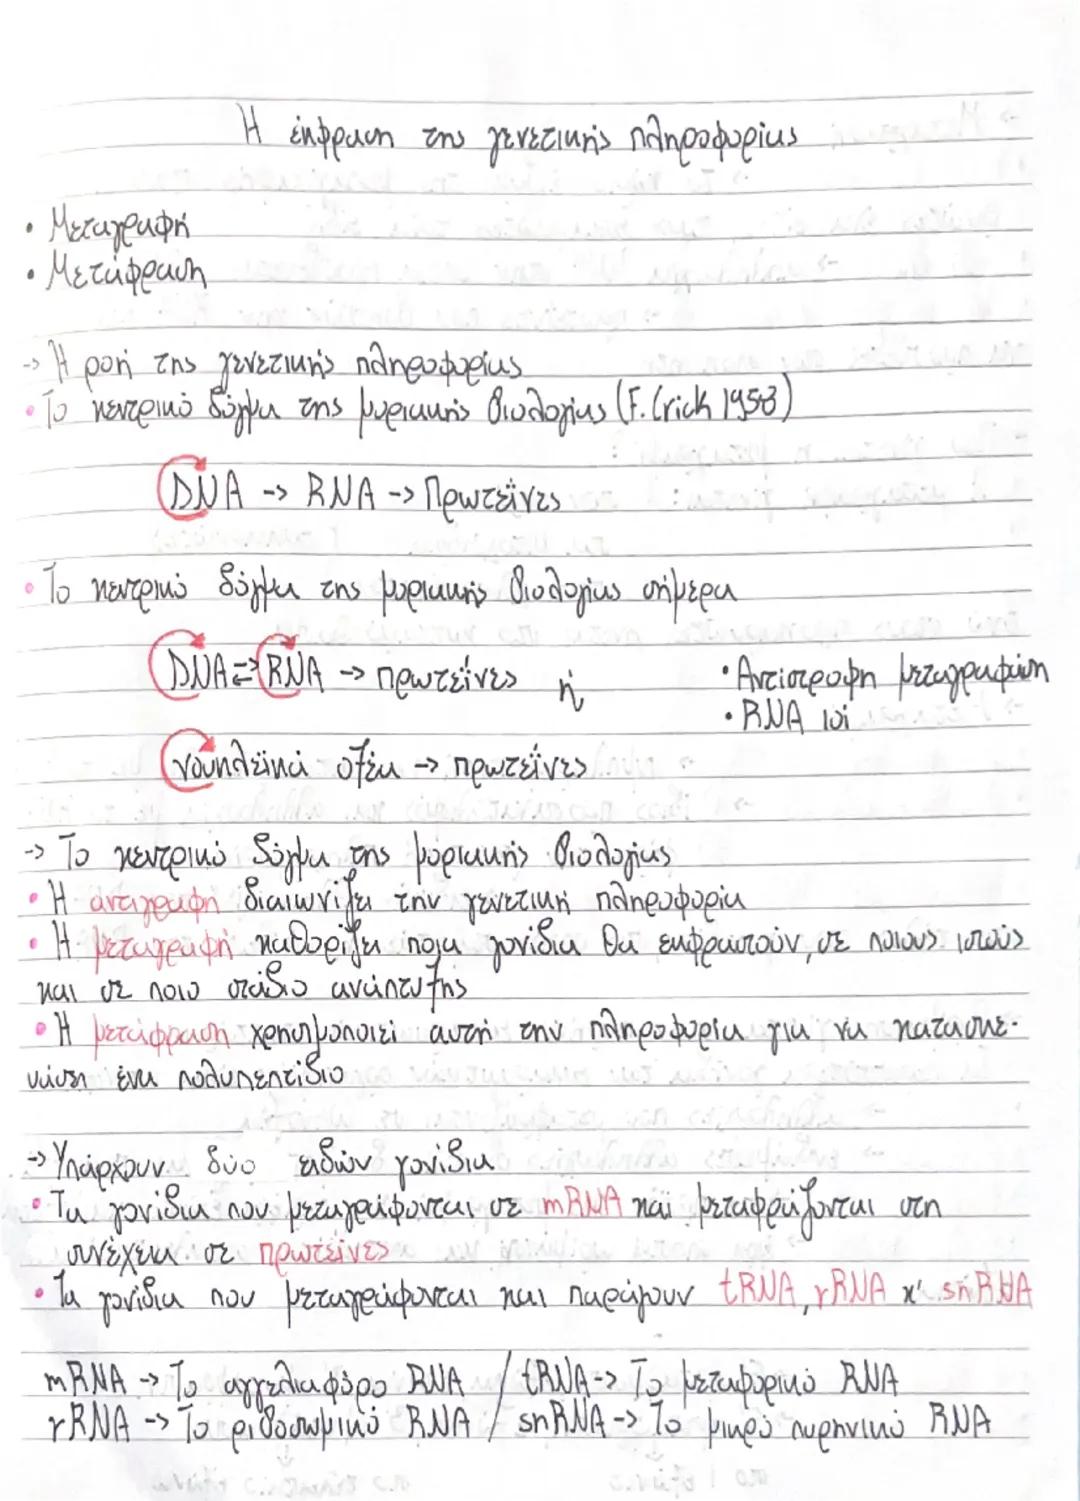 Η έκφραση της γενετικής πληροφορίας
• Μεταγραφή
• Μετάφραση
-> Η ροή της γενετικής πληροφορίας
• Το κεντρικό δόγμα της μοριακής βιολογίας (F. Crick 1958)
DNA -> RNA -> Πρωτεΐνες
• Το κεντρικό δόγμα της μοριακής βιολογίας σήμερα
DNA ⇄ RNA -> πρωτεΐνες ή
• Αντίστροφη μεταγραφάση
• RNA ιοί
νουκλεϊκά οξέα -> πρωτεΐνες
-> Το κεντρικό δόγμα της μοριακής βιολογίας
• Η αντιγραφή διαιωνίζει την γενετική πληροφορία
• Η μεταγραφή καθορίζει ποια γονίδια θα εκφραστούν, σε ποιους ιστούς
και σε ποιο στάδιο ανάπτυξης
• Η μετάφραση χρησιμοποιεί αυτή την πληροφορία για να κατασκε-
υάσει ένα πολυπεπτίδιο
-> Υπάρχουν δύο ειδών γονίδια
• Τα γονίδια που μεταγράφονται σε mRNA και μεταφράζονται στη
συνέχεια σε πρωτεΐνες
• Τα γονίδια που μεταγράφονται και παράγουν tRNA, rRNA κ' snRNA
mRNA -> Το αγγελιαφόρο RNA / tRNA -> Το μεταφορικό RNA
rRNA -> Το ριβοσωμικό RNA / snRNA -> Το μικρό πυρηνικό RNA